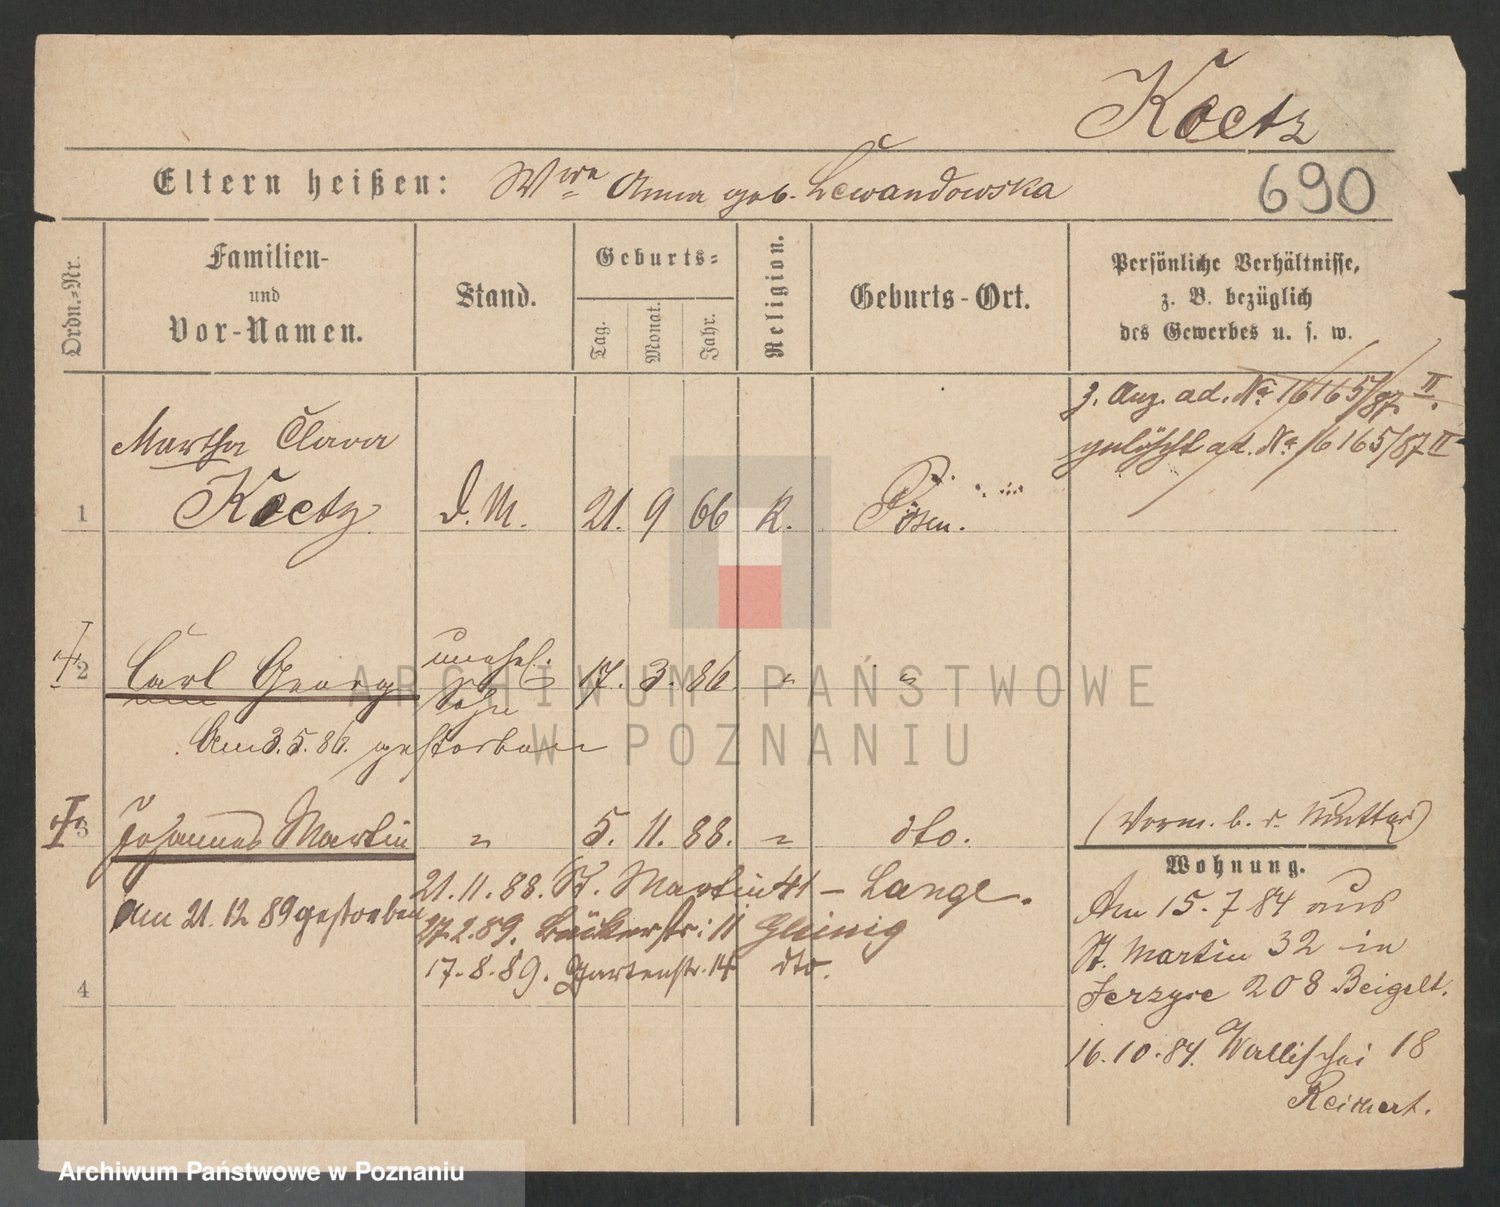 Koetz
Eltern heißen: Wwe Anna geb. Lewandowska
690
Ordn.-Nr.
Familien-
und
Vor-Namen.
Stand.
Geburts-
Tag.
Monat.
Jahr.
Religion.
Geburts-Ort.
Persönliche Verhältnisse,
z. B. bezüglich
des Gewerbes u. s. w.
z. Anz. ad. No 16165/87 II.
gelöscht ad. No 16165/87 II
Martha Clara
1 Koetz D. M. 21. 9 66 K. Posen.
2 Carl Georg unehel. Sohn 17. 3. 86. " "
Am 3. 5. 86. gestorben
3 Johannes Martin " 5. 11. 88. " dto.
(Vorm. b. d. Mutter)
Am 21. 12 89 gestorben
21. 11. 88. St. Martin 41 – Lange.
27. 2. 89. Bäckerstr: 11 Gleinig
17. 8. 89. Gartenstr. 14 dto.
4
Wohnung.
Am 15. 7 84 aus
St. Martin 32 in
Jerzyce 208 Beigelt.
16. 10. 84. Wallischei 18
Reichert.
ARCHIWUM PAŃSTWOWE
W POZNANIU
Archiwum Państwowe w Poznaniu